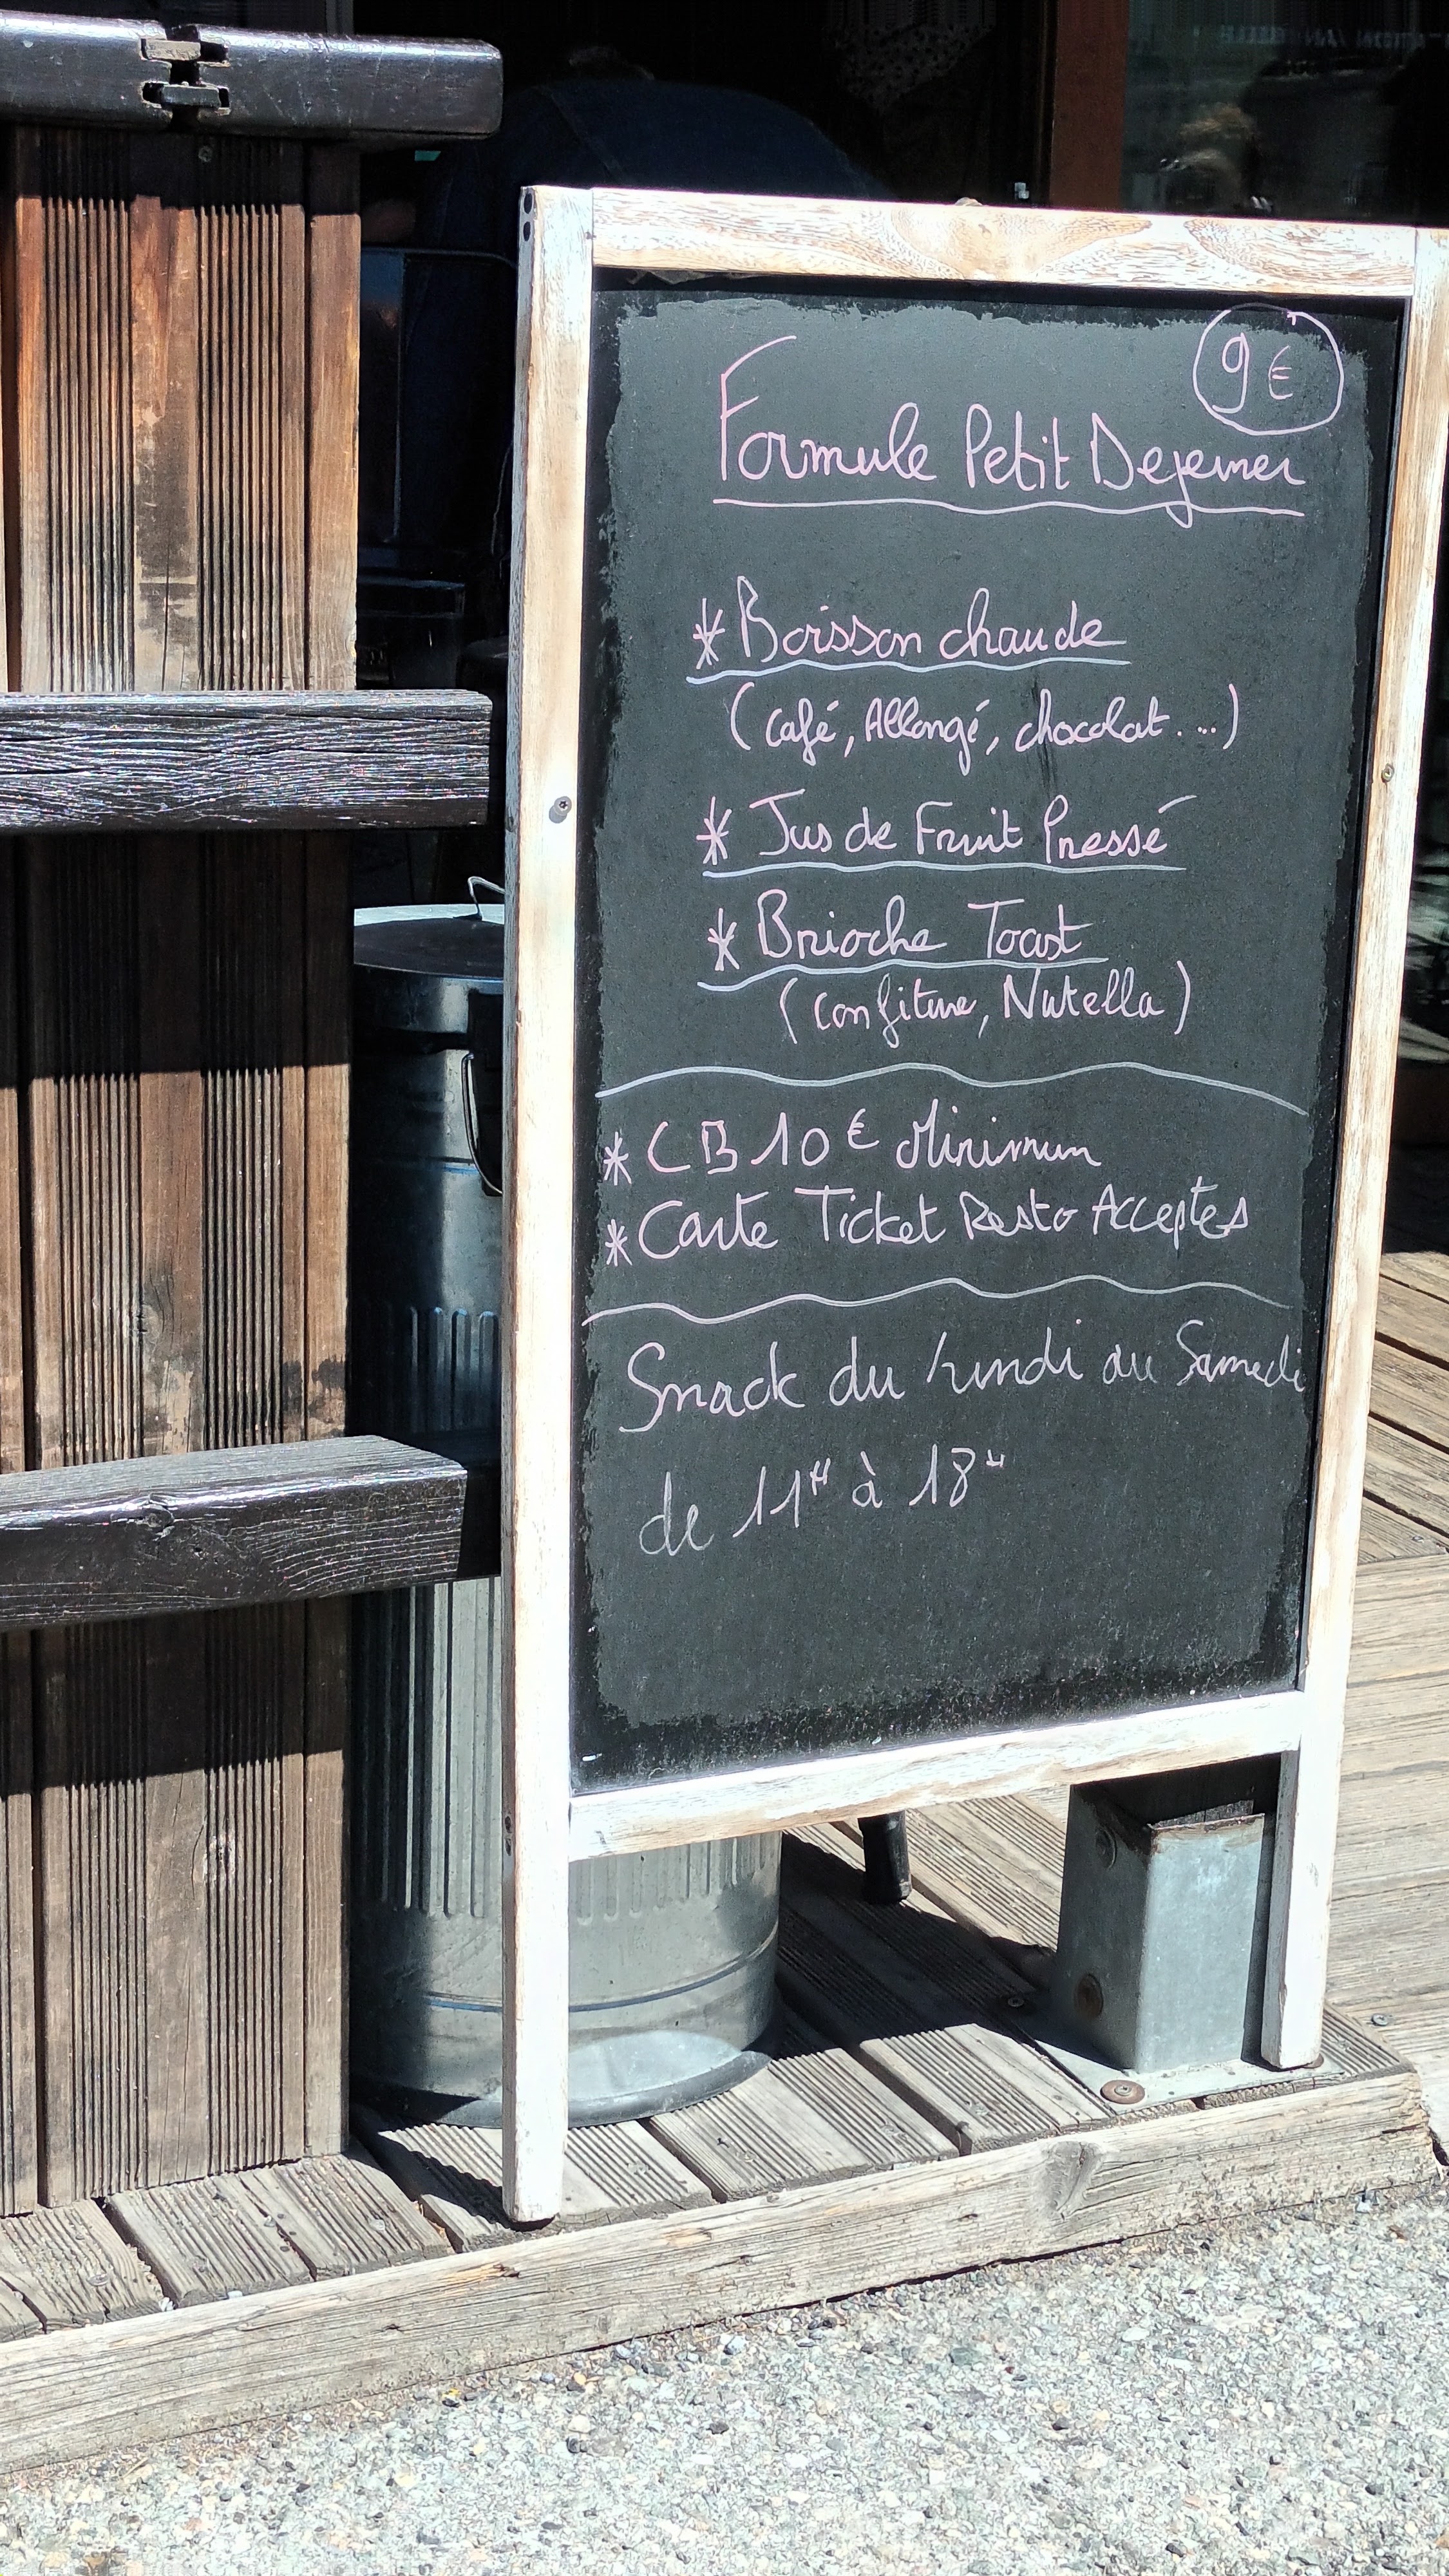 9€
Formule Petit Dejeuner
* Boisson chaude
(café, Allongé, chocolat...)
* Jus de Fruit Pressé
* Brioche Toast
(confiture, Nutella)
* CB 10€ Minimum
* Carte Ticket Resto Acceptes
Snack du lundi au Samedi
de 11H à 18H